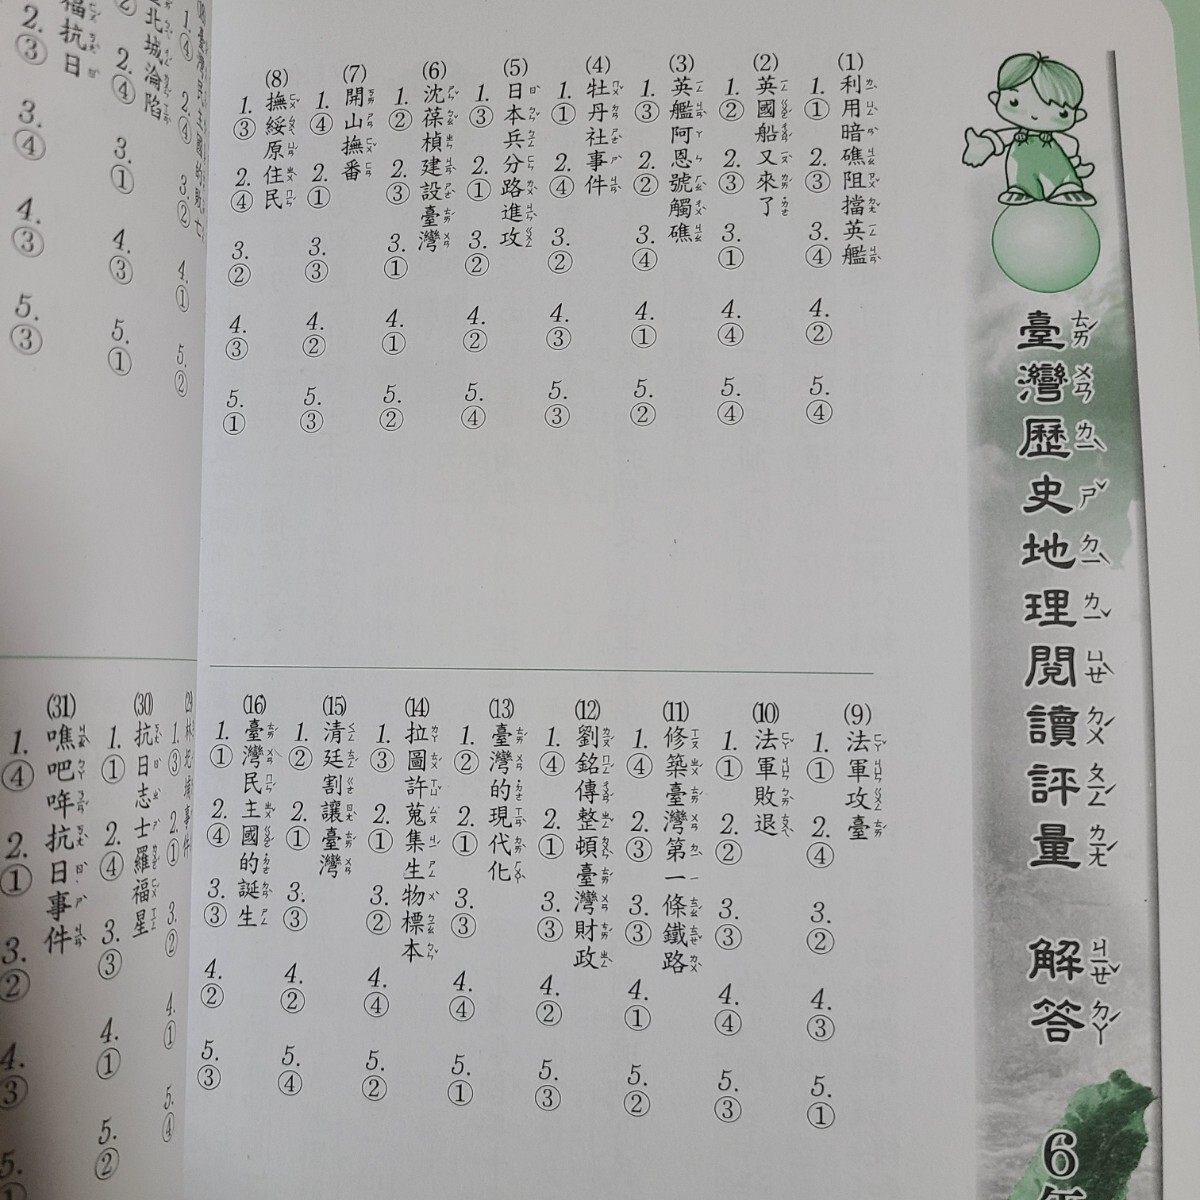 臺灣歷史地理閱讀評量 解答
6年
(1)利用暗礁阻擋英艦
1.① 2.③ 3.④ 4.② 5.④
(2)英國船又來了
1.② 2.③ 3.① 4.④ 5.④
(3)英艦阿恩號觸礁
1.③ 2.② 3.④ 4.① 5.②
(4)牡丹社事件
1.① 2.④ 3.② 4.③ 5.③
(5)日本兵分路進攻
1.③ 2.① 3.② 4.② 5.④
(6)沈葆楨建設臺灣
1.② 2.③ 3.① 4.① 5.②
(7)開山撫番
1.④ 2.① 3.③ 4.② 5.③
(8)撫綏原住民
1.③ 2.④ 3.② 4.③ 5.①
(9)法軍攻臺
1.① 2.④ 3.② 4.③ 5.①
(10)法軍敗退
1.① 2.② 3.③ 4.④ 5.③
(11)修築臺灣第一條鐵路
1.④ 2.③ 3.③ 4.① 5.②
(12)劉銘傳整頓臺灣財政
1.④ 2.① 3.③ 4.② 5.③
(13)臺灣的現代化
1.② 2.① 3.③ 4.④ 5.①
(14)拉圖許蒐集生物標本
1.③ 2.① 3.② 4.④ 5.②
(15)清廷割讓臺灣
1.② 2.① 3.③ 4.② 5.④
(16)臺灣民主國的誕生
1.① 2.④ 3.③ 4.② 5.③
臺灣民主國的
1.④ 2.④ 3.② 4.① 5.②
北城淪陷
② 2.④ 3.① 4.③ 5.①
福抗日
2.③ 3.④ 4.③ 5.③
事件
1.③ 2.① 3.② 4.① 5.④
(30)抗日志士羅福星
1.① 2.④ 3.③ 4.① 5.②
(31)噍吧哖抗日事件
1.④ 2.① 3.② 4.③ 5.①